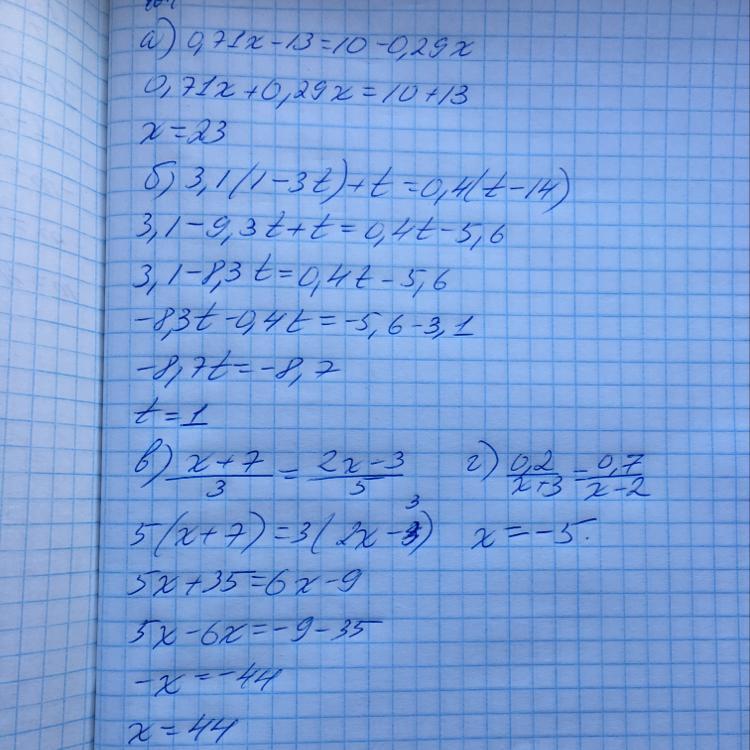 а) 0,71x-13=10-0,29x
0,71x+0,29x=10+13
x=23
б) 3,1(1-3t)+t=0,4(t-14)
3,1-9,3t+t=0,4t-5,6
3,1-8,3t=0,4t-5,6
-8,3t-0,4t=-5,6-3,1
-8,7t=-8,7
t=1
в) x+7/3 = 2x-3/5
5(x+7)=3(2x-3)
5x+35=6x-9
5x-6x=-9-35
-x=-44
x=44
г) 0,2/x+3=0,7/x-2
x=-5.